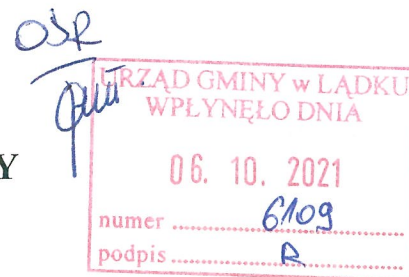 OŚR
URZĄD GMINY w LĄDKU
WPŁYNĘŁO DNIA
Y
06. 10. 2021
numer ........ 6109
podpis ........ R